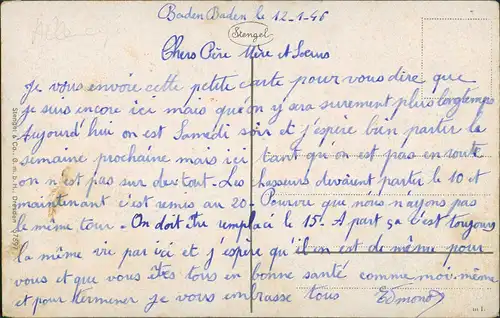 Baden Baden le 12-1-46
Stengel
Chers Père Mère et Soeurs
Je vous envoie cette petite carte pour vous dire que
je suis encore ici mais qu'on y sera surement plus longtemps
aujourd'hui on est Samedi soir et j'espère bien partir la
semaine prochaine mais ici tant qu'on est pas en route
on n'est pas sur du tout. Les chasseurs devaient partir le 10 et
maintenant c'est remis au 20 - Pourvu que nous n'ayons pas
le même tour - On doit être remplacé le 15. A part ça c'est toujours
la même vie par ici et j'espère qu'il en est de même pour
vous et que vous êtes tous en bonne santé comme moi-même
et pour terminer je vous embrasse tous Edmond
Stengel & Co., G. m. b. H., Dresden